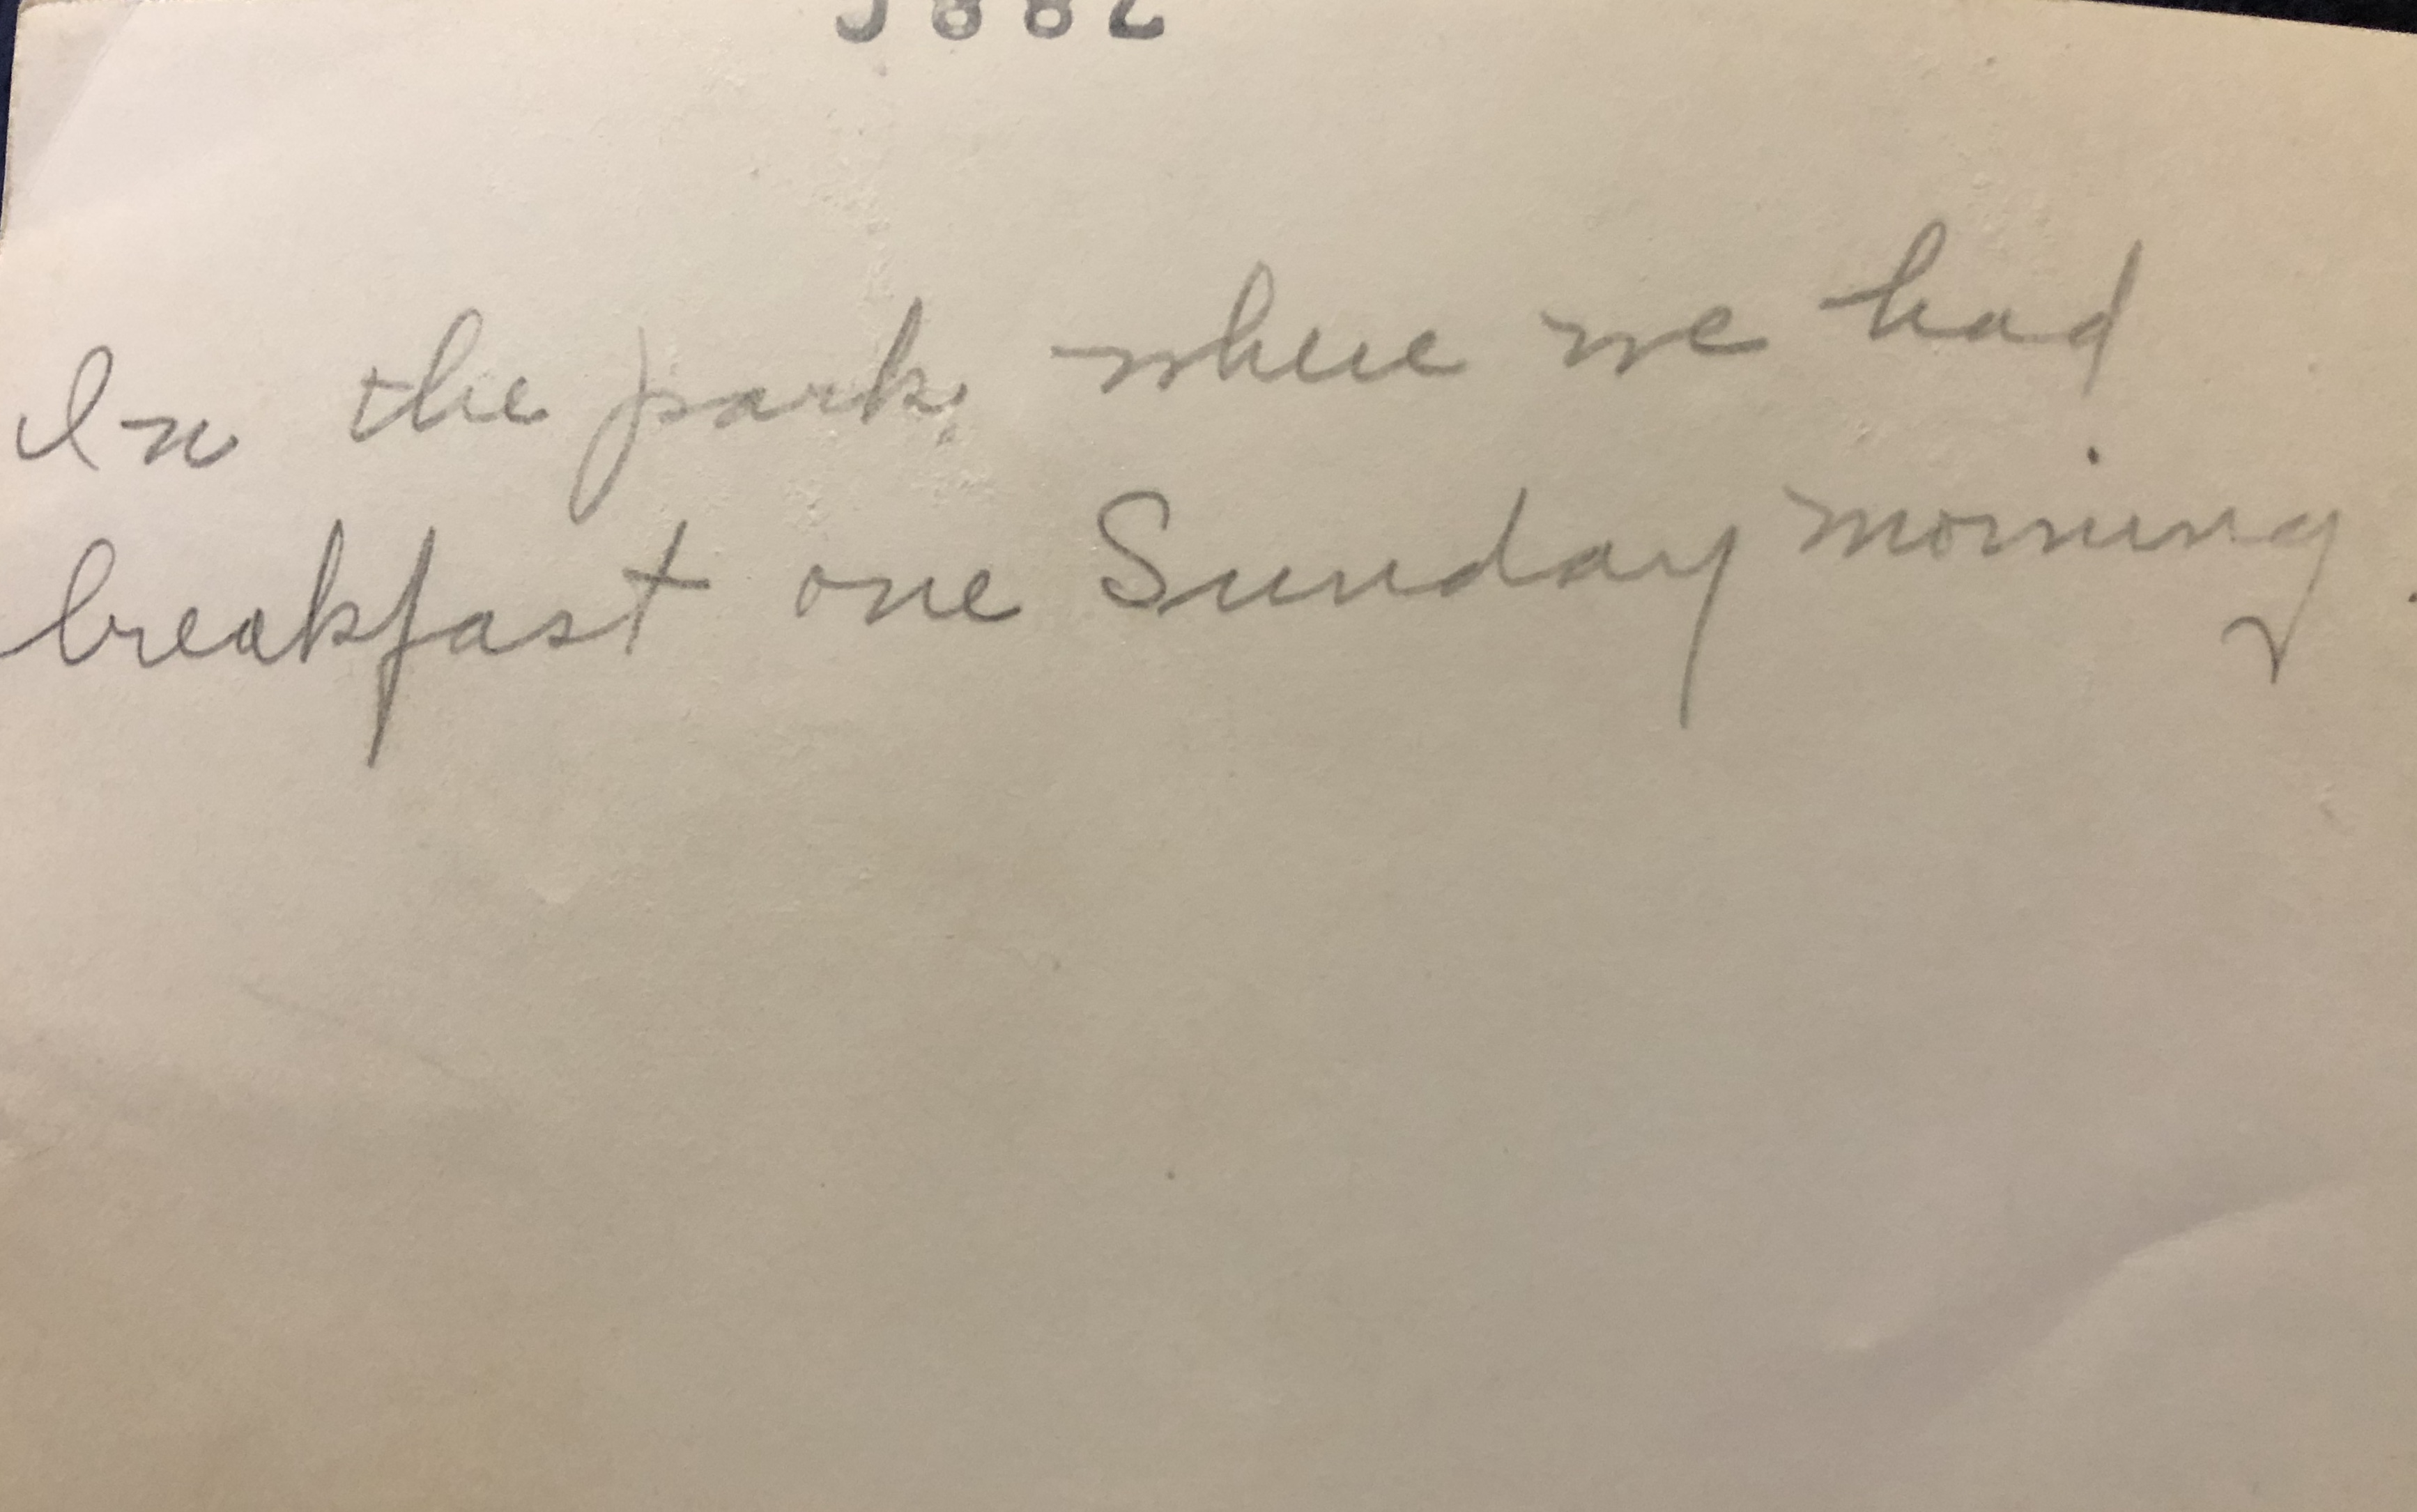 In the park where we had
breakfast one Sunday morning.